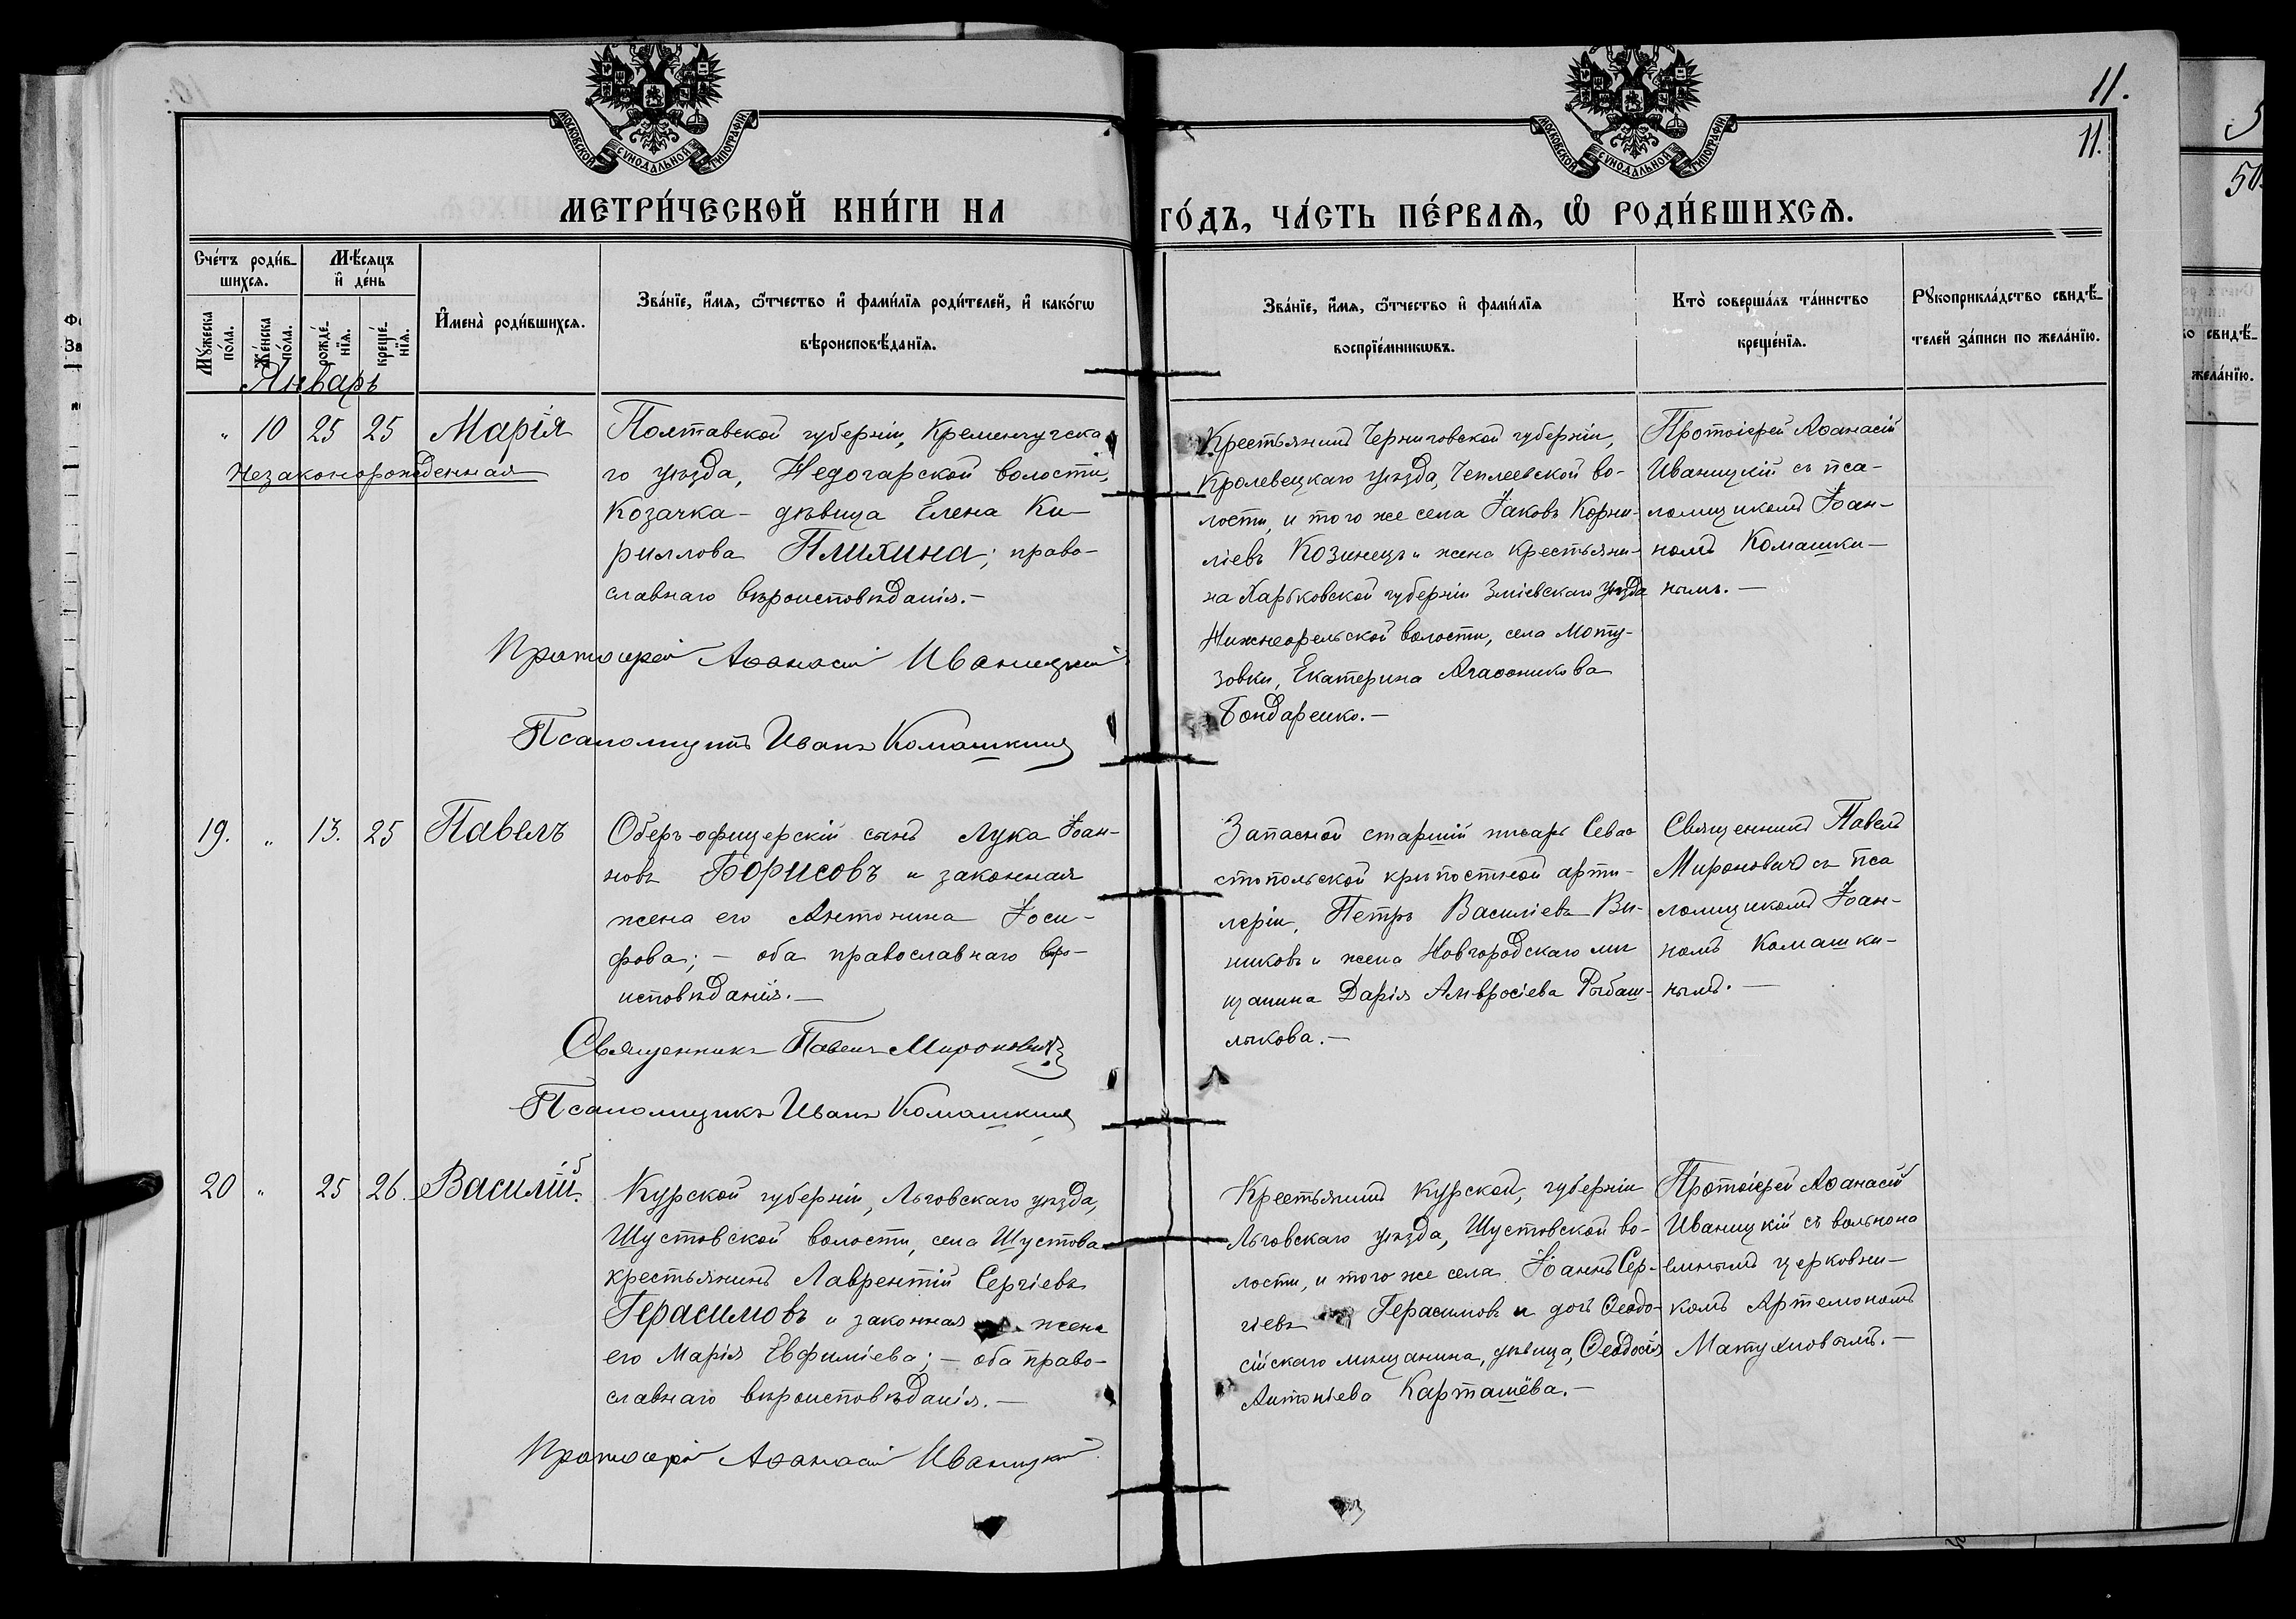 11.
11.
МОСКОВСКОЙ СУНОДАЛЬНОЙ ТИПОГРАФІИ
МОСКОВСКОЙ СУНОДАЛЬНОЙ ТИПОГРАФІИ
МЕТРИ́ЧЕСКОЙ КНИ́ГИ НА
ГО́ДЪ, ЧА́СТЬ ПЕ́РВАѦ, Ѡ҆ РОДИ́ВШИХСѦ.
Сче́тъ роди́в-
шихсѧ.
Мѣ́сѧцъ
и҆ де́нь
Мꙋ́жеска
по́ла.
Же́нска
по́ла.
рожде́-
нїѧ.
креще́-
нїѧ.
И҆мена̀ роди́вшихсѧ.
Зва́нїе, и҆́мѧ, ѻ҆́тчество и҆ фами́лїѧ роди́телей, и҆ како́гѡ
вѣроисповѣ́данїѧ.
Зва́нїе, и҆́мѧ, ѻ҆́тчество и҆ фами́лїѧ
воспрїе́мникѡвъ.
Кто̀ соверша́лъ та́инство
креще́нїѧ.
Рꙋкоприкла́дство свидѣ́-
телей за́писи по жела́нїю.
Январь
" 10 25 25 Марія
Незаконорожденная
Полтавской губерніи, Кременчугска-
го уѣзда, Недогарской волости,
Козачка - дѣвица Елена Ки-
риллова Плихина; право-
славнаго вѣроисповѣданія.-
Протоіерей Аѳанасій Иваницкій
Псаломщикъ Иванъ Комашкинъ
Крестьянинъ Черниговской губерніи,
Кролевецкаго уѣзда, Чеплеевской во-
лости, и того же села Іаковъ Корни-
ліевъ Козинецъ и жена крестьяни-
на Харьковской губерніи Зміевскаго уѣзда
Нижнеорельской волости, села Моту-
зовки, Екатерина Агаѳоникова
Бондаренко.-
Протоіерей Аѳанасій
Иваницкій съ пса-
ломщикомъ Іоан-
номъ Комашки-
нымъ.-
19. " 13. 25 Павелъ
Оберъ-офицерскій сынъ Лука Іоан-
новъ Борисовъ и законная
жена его Антонина Іоси-
фова; - оба православнаго вѣро-
исповѣданія.-
Священникъ Павелъ Мироновичъ
Псаломщикъ Иванъ Комашкинъ
Запасной старшій писарь Сева-
стопольской крѣпостной арти-
леріи, Петръ Василіевъ Ви-
никовъ и жена Новгородскаго мѣ-
щанина Дарія Амвросіева Рыбаш-
лыкова.-
Священникъ Павелъ
Мироновичъ съ пса
ломщикомъ Іоан-
номъ Комашки-
нымъ.-
20 " 25 26. Василій.
Курской губерніи, Льговскаго уѣзда,
Шустовской волости, села Шустова
крестьянинъ Лаврентій Сергіевъ
Герасимовъ и законная жена
его Марія Евфиміева; - оба право-
славнаго вѣроисповѣданія.-
Протоіерей Аѳанасій Иваницкій
Крестьянинъ Курской, губерніи
Льговскаго уѣзда, Шустовской во-
лости, и того же села Іоаннъ Сер-
гіевъ Герасимовъ и дочь Ѳеодо-
сійскаго мѣщанина, дѣвица, Ѳеодосія
Антоніева Карташёва.-
Протоіерей Аѳанасій
Иваницкій съ вольнона
емнымъ церковни-
комъ Артемономъ
Матухновымъ.-
5
50
свидѣ-
жела́нїю.